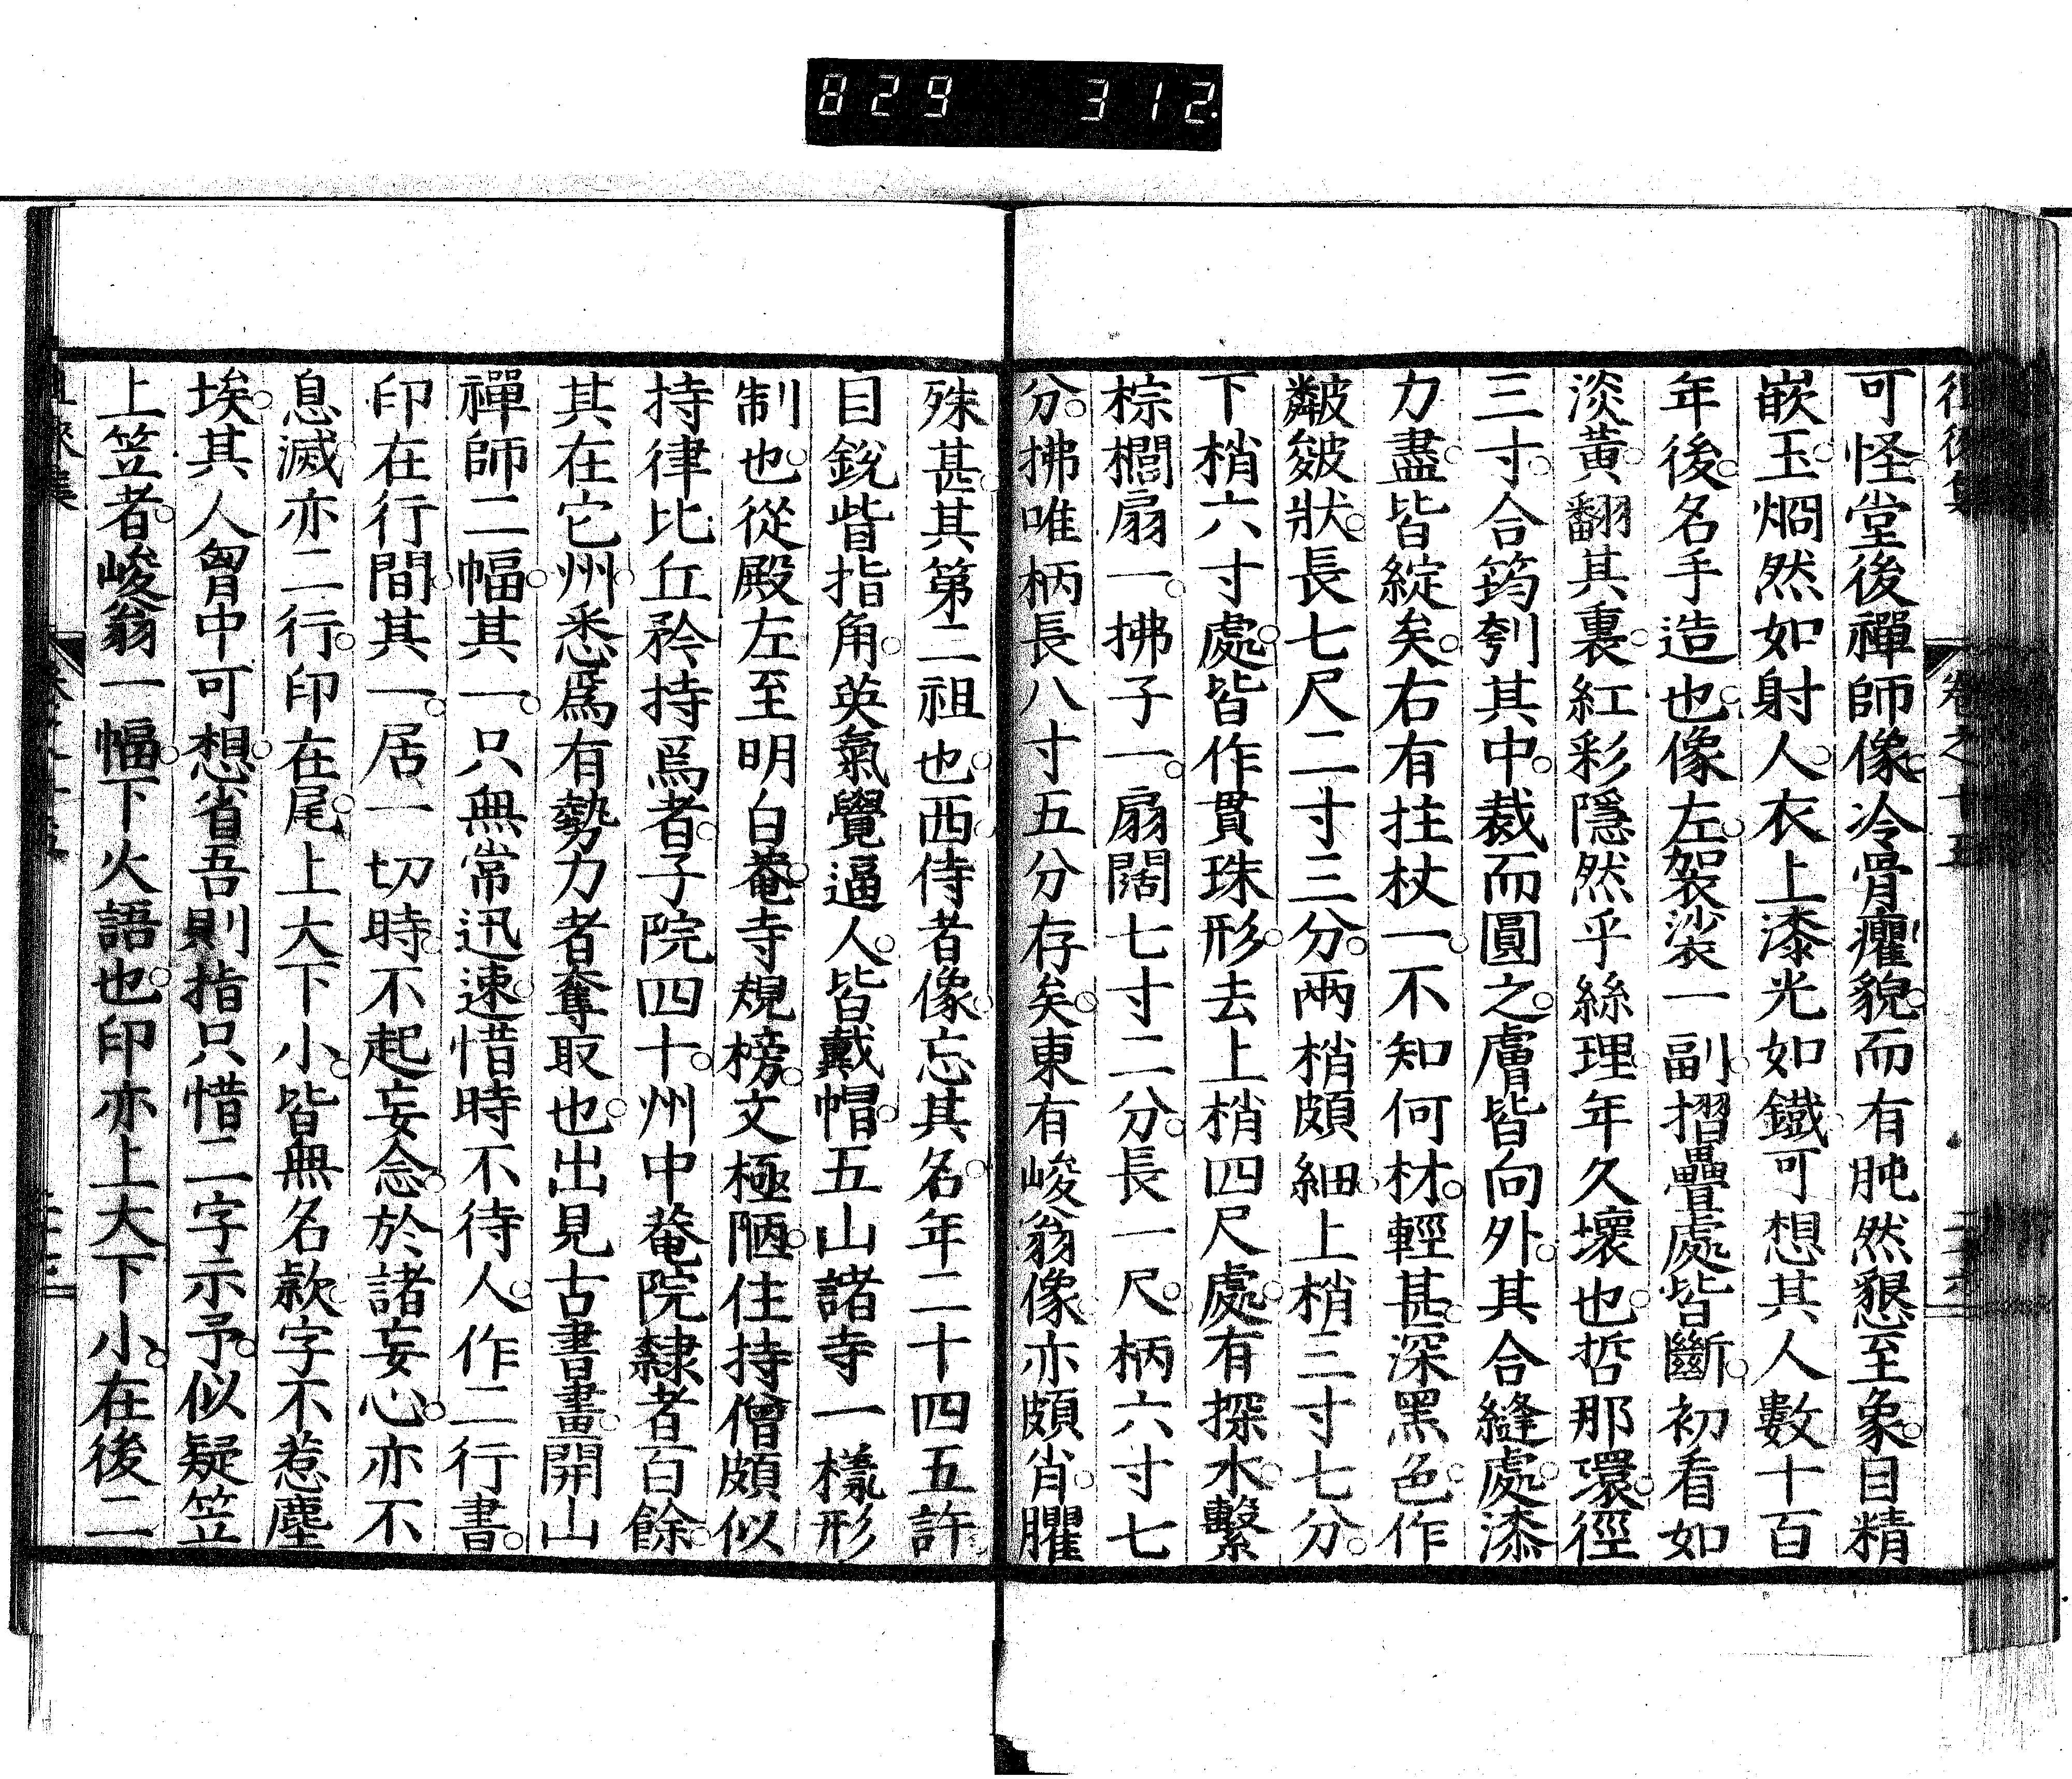 829 312
可怪。堂後禪師像。冷骨癯貌。而有肫然懇至象。目精
嵌玉。烱然如射人。衣上漆光如鐵。可想其人數十百
年後。名手造也。像左。袈裟一副。摺疊處皆斷。初看如
淡黃。翻其裏。紅彩隱然乎絲理。年久壞也。哲那環。徑
三寸。合筠刳其中。裁而圓之。膚皆向外。其合縫處。漆
力盡。皆綻矣。右有拄杖一。不知何材。輕甚。深黑色。作
皺皴狀。長七尺二寸三分。兩梢頗細。上梢三寸七分。
下梢六寸處。皆作貫珠形。去上梢四尺處。有探水。繫
棕櫚扇一。拂子一。扇闊七寸二分。長一尺。柄六寸七
分。拂唯柄長八寸五分存矣。東有峻翁像。亦頗肖。臞
殊甚。其第二祖也。西侍者像。忘其名。年二十四五許
目銳眥指角。英氣覺逼人。皆戴帽。五山諸寺一樣形
制也。從殿左至明白菴。寺規榜。文極陋。住持僧頗似
持律比丘矜持爲者。子院四十。州中菴院隸者百餘。
其在它州。悉爲有勢力者奪取也。出見古書畫。開山
禪師二幅。其一。只無常迅速。惜時不待人。作二行書。
印在行間。其一。居一切時。不起妄念。於諸妄心。亦不
息滅。亦二行。印在尾。上大下小。皆無名款。字不惹塵
埃。其人胷中可想。省吾則指只惜二字示予。似疑笠
上笠者。峻翁一幅。下火語也。印亦上大下小。在後二